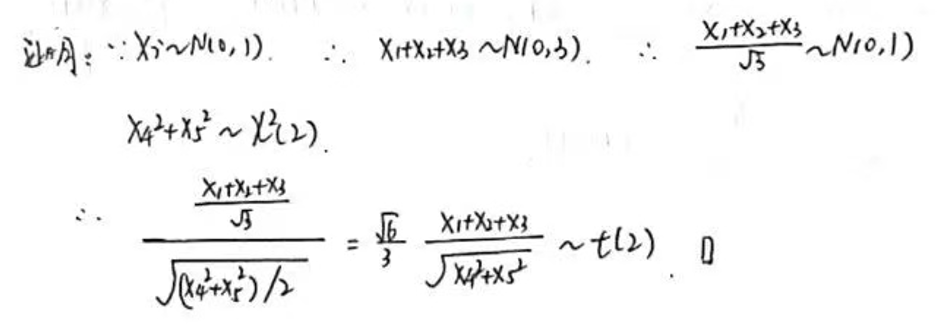 证明：∵ Xi~N(0,1). ∴ X1+X2+X3 ~N(0,3). ∴ (X1+X2+X3)/√3 ~N(0,1)
X4²+X5² ~ χ²(2).
∴ ((X1+X2+X3)/√3)/√((X4²+X5²)/2) = (√6/3) (X1+X2+X3)/√(X4²+X5²) ~ t(2). □